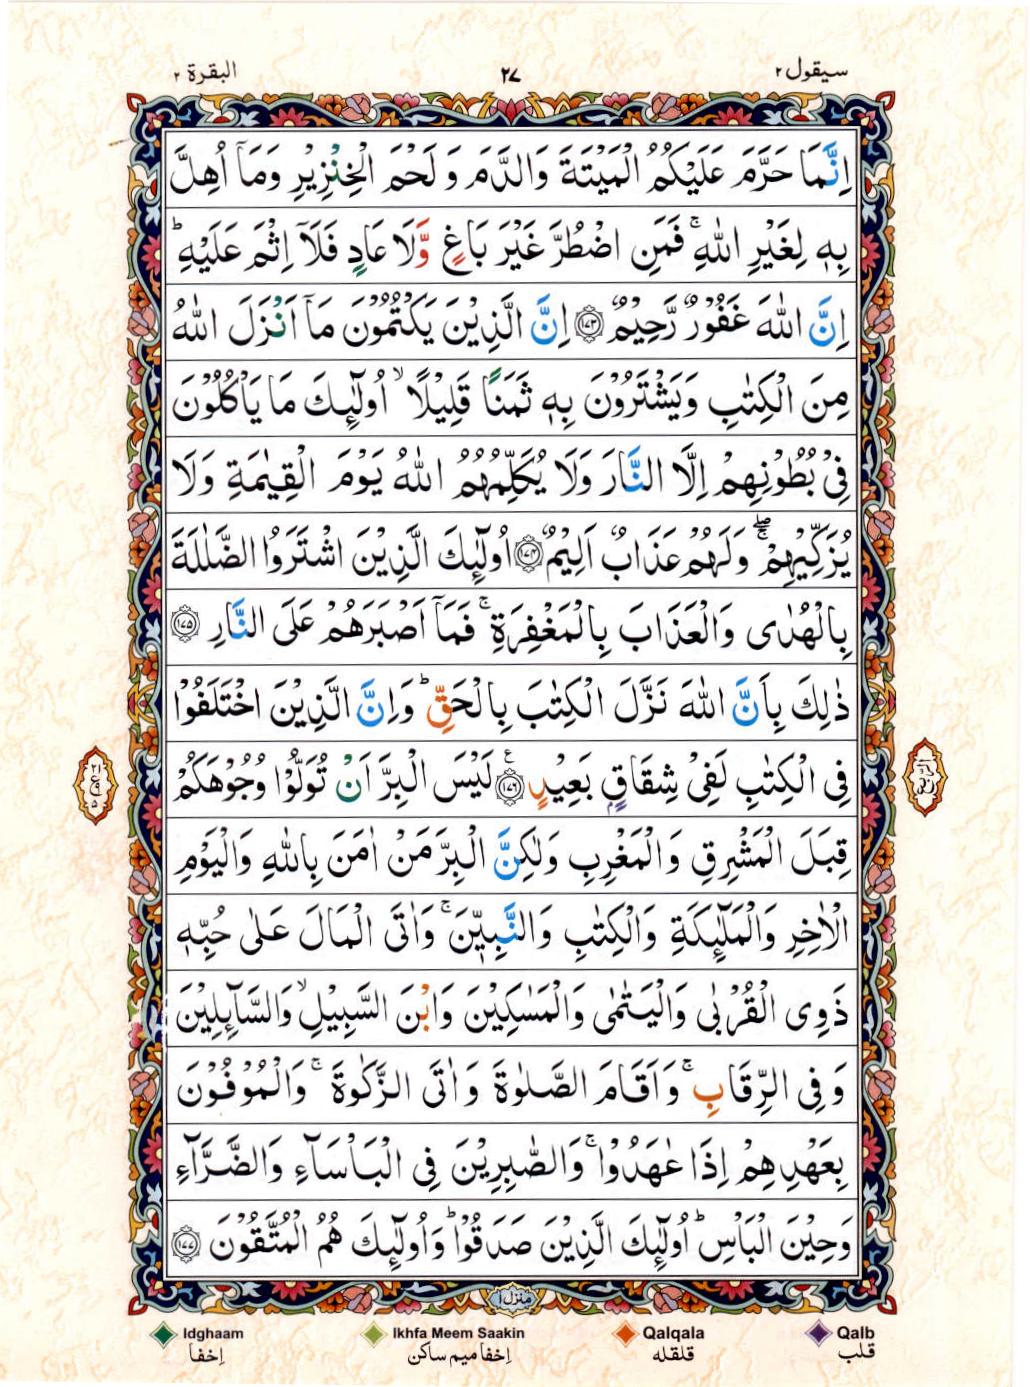 سيقول ٢
٢٧
البقرة ٢
اِنَّمَا حَرَّمَ عَلَيْكُمُ الْمَيْتَةَ وَالدَّمَ وَلَحْمَ الْخِنْزِيْرِ وَمَاۤ اُهِلَّ
بِهٖ لِغَيْرِ اللّٰهِ ۚ فَمَنِ اضْطُرَّ غَيْرَ بَاغٍ وَّلَا عَادٍ فَلَاۤ اِثْمَ عَلَيْهِ ؕ
اِنَّ اللّٰهَ غَفُوْرٌ رَّحِيْمٌ ۝١٧٣ اِنَّ الَّذِيْنَ يَكْتُمُوْنَ مَاۤ اَنْزَلَ اللّٰهُ
مِنَ الْكِتٰبِ وَيَشْتَرُوْنَ بِهٖ ثَمَنًا قَلِيْلًا ۙ اُولٰٓئِكَ مَا يَاْكُلُوْنَ
فِيْ بُطُوْنِهِمْ اِلَّا النَّارَ وَلَا يُكَلِّمُهُمُ اللّٰهُ يَوْمَ الْقِيٰمَةِ وَلَا
يُزَكِّيْهِمْ ۖۚ وَلَهُمْ عَذَابٌ اَلِيْمٌ ۝١٧٤ اُولٰٓئِكَ الَّذِيْنَ اشْتَرَوُا الضَّلٰلَةَ
بِالْهُدٰى وَالْعَذَابَ بِالْمَغْفِرَةِ ۚ فَمَاۤ اَصْبَرَهُمْ عَلَى النَّارِ ۝١٧٥
ذٰلِكَ بِاَنَّ اللّٰهَ نَزَّلَ الْكِتٰبَ بِالْحَقِّ ؕ وَاِنَّ الَّذِيْنَ اخْتَلَفُوْا
فِى الْكِتٰبِ لَفِيْ شِقَاقٍۭ بَعِيْدٍ ۝١٧٦ ع لَيْسَ الْبِرَّ اَنْ تُوَلُّوْا وُجُوْهَكُمْ
قِبَلَ الْمَشْرِقِ وَالْمَغْرِبِ وَلٰكِنَّ الْبِرَّ مَنْ اٰمَنَ بِاللّٰهِ وَالْيَوْمِ
الْاٰخِرِ وَالْمَلٰٓئِكَةِ وَالْكِتٰبِ وَالنَّبِيّٖنَ ۚ وَاٰتَى الْمَالَ عَلٰى حُبِّهٖ
ذَوِى الْقُرْبٰى وَالْيَتٰمٰى وَالْمَسٰكِيْنَ وَابْنَ السَّبِيْلِ ۙ وَالسَّآئِلِيْنَ
وَفِى الرِّقَابِ ۚ وَاَقَامَ الصَّلٰوةَ وَاٰتَى الزَّكٰوةَ ۚ وَالْمُوْفُوْنَ
بِعَهْدِهِمْ اِذَا عٰهَدُوْا ۚ وَالصّٰبِرِيْنَ فِى الْبَاْسَآءِ وَالضَّرَّآءِ
وَحِيْنَ الْبَاْسِ ؕ اُولٰٓئِكَ الَّذِيْنَ صَدَقُوْا ؕ وَاُولٰٓئِكَ هُمُ الْمُتَّقُوْنَ ۝١٧٧
الربع
منزل ١
Idghaam
اِخفا
Ikhfa Meem Saakin
اِخفا ميم ساكن
Qalqala
قلقله
Qalb
قلب